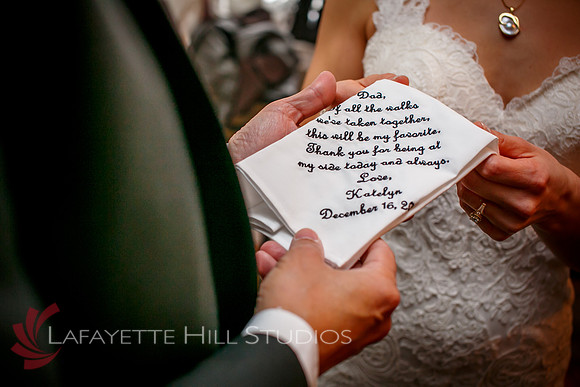 Dad,
Of all the walks
we've taken together,
this will be my favorite.
Thank you for being at
my side today and always.
Love,
Katelyn
December 16, 20
LAFAYETTE HILL STUDIOS